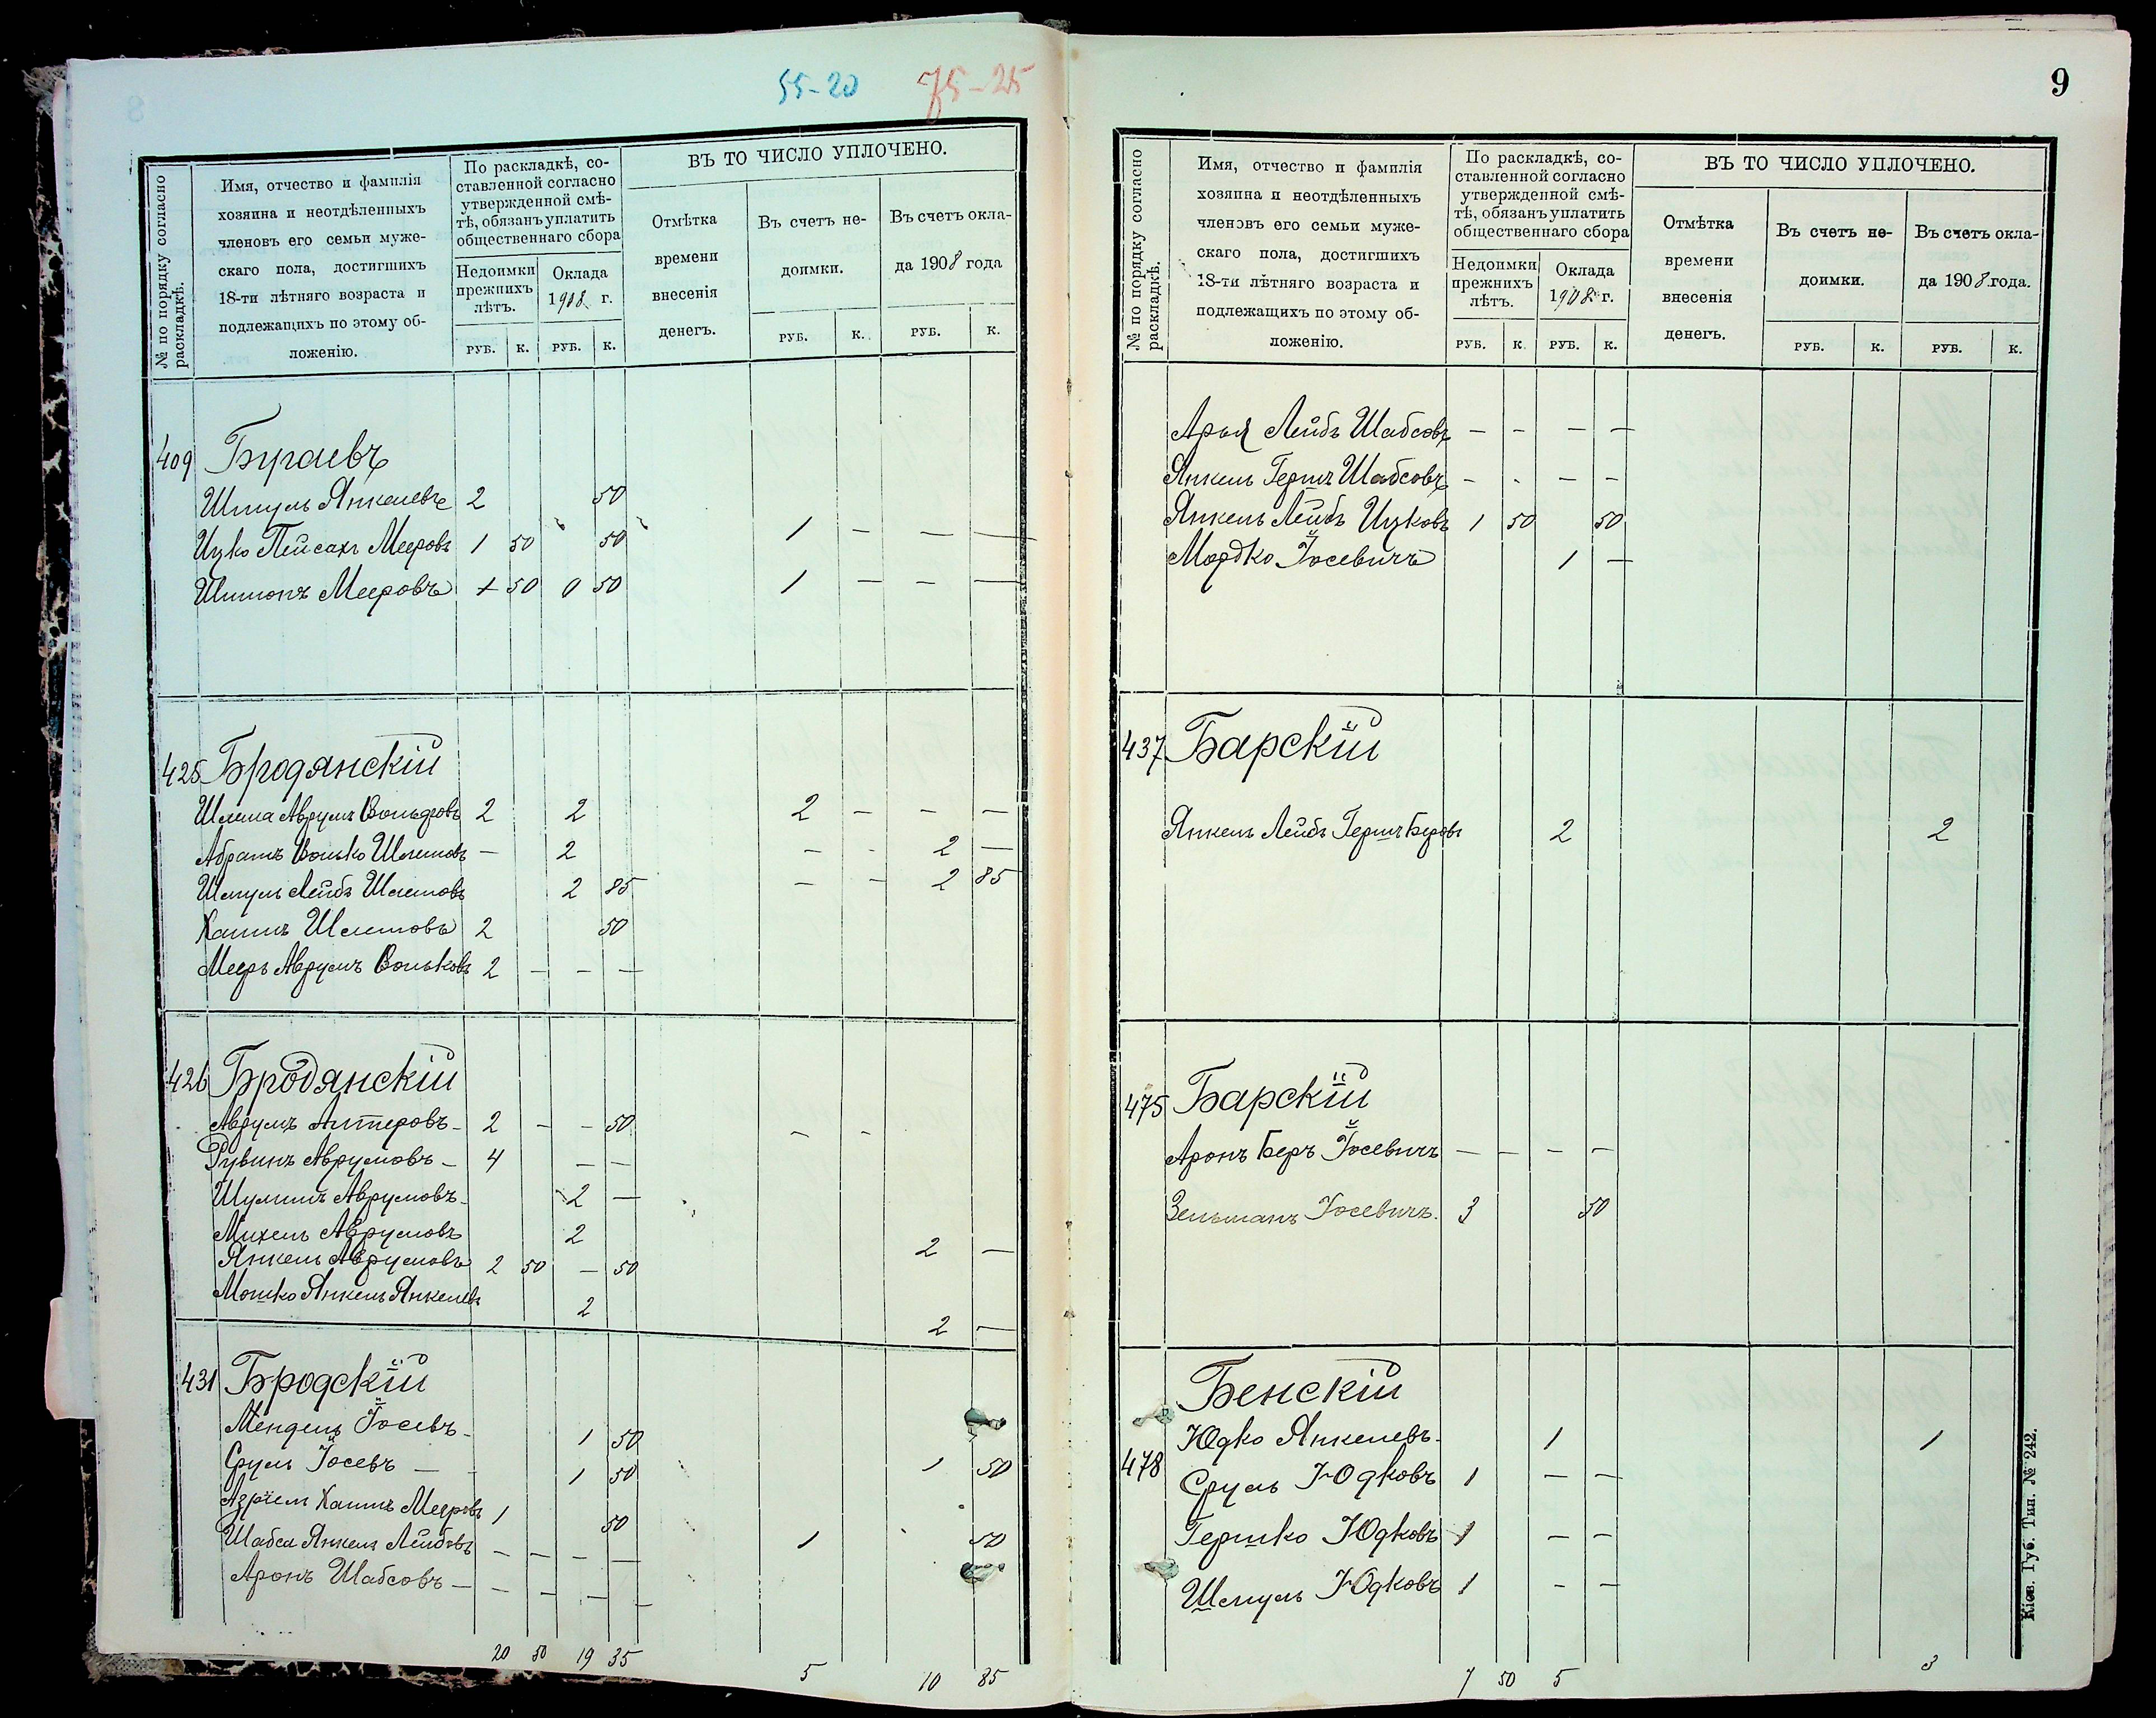 55-20 75-25
№ по порядку согласно раскладкѣ.
Имя, отчество и фамилія
хозяина и неотдѣленныхъ
членовъ его семьи муже-
скаго пола, достигшихъ
18-ти лѣтняго возраста и
подлежащихъ по этому об-
ложенію.
По раскладкѣ, со-
ставленной согласно
утвержденной смѣ-
тѣ, обязанъ уплатить
общественнаго сбора
Недоимки
прежнихъ
лѣтъ.
Оклада
1908 г.
ВЪ ТО ЧИСЛО УПЛОЧЕНО.
Отмѣтка
времени
внесенія
денегъ.
Въ счетъ не-
доимки.
Въ счетъ окла-
да 1908 года
РУБ. К. РУБ. К. РУБ. К. РУБ. К.
409 Бугаевъ
Шмуль Янкелевъ 2 50
Ицко Пейсахъ Мееровъ 1 50 50 1 — — —
Шимонъ Мееровъ + 50 0 50 1 — — —
425 Бродянскій
Шлема Аврумъ Вольфовъ 2 2 2 — — —
Абрамъ Волько Шлемовъ — 2 — - 2 —
Шмуль Лейбъ Шлемовъ 2 85 — — 2 85
Хаимъ Шлемовъ 2 50
Мееръ Аврумъ Вольковъ 2 — — —
426 Бродянскій
Аврумъ Алтеровъ - 2 — - 50 — -
Рувинъ Аврумовъ - 4 — —
Шулимъ Аврумовъ - 2 —
Михель Аврумовъ 2 2 —
Янкель Аврумовъ 2 50 — 50
Мошко Янкель Янкелевъ 2 2 —
431 Бродскій
Мендель Іосевъ - 1 50
Сруль Іосевъ — 1 50 1 50
Азріель Хаимъ Мееровъ 1 50
Шабса Янкель Лейбовъ — — — — 1 50
Аронъ Шабсовъ — — — — —
20 50 19 35 5 10 85
9
№ по порядку согласно раскладкѣ.
Имя, отчество и фамилія
хозяина и неотдѣленныхъ
членовъ его семьи муже-
скаго пола, достигшихъ
18-ти лѣтняго возраста и
подлежащихъ по этому об-
ложенію.
По раскладкѣ, со-
ставленной согласно
утвержденной смѣ-
тѣ, обязанъ уплатить
общественнаго сбора
Недоимки
прежнихъ
лѣтъ.
Оклада
1908 г.
ВЪ ТО ЧИСЛО УПЛОЧЕНО.
Отмѣтка
времени
внесенія
денегъ.
Въ счетъ не-
доимки.
Въ счетъ окла-
да 1908 года.
РУБ. К. РУБ. К. РУБ. К. РУБ. К.
Арья Лейбъ Шабсовъ — - — —
Янкель Гершъ Шабсовъ - - — —
Янкель Лейбъ Ицковъ 1 50 50
Мордко Іосевичъ 1 —
437 Барскій
Янкель Лейбъ Гершъ Беровъ 2 2
475 Барскій
Аронъ Беръ Іосевичъ — — — —
Зельманъ Іосевичъ. 3 50
Бенскій
Юдко Янкелевъ - 1 1
478 Сруль Юдковъ 1 — —
Гершко Юдковъ 1 — —
Шмуль Юдковъ 1 - —
7 50 5 3
Кіев. Губ. Тип. № 242.